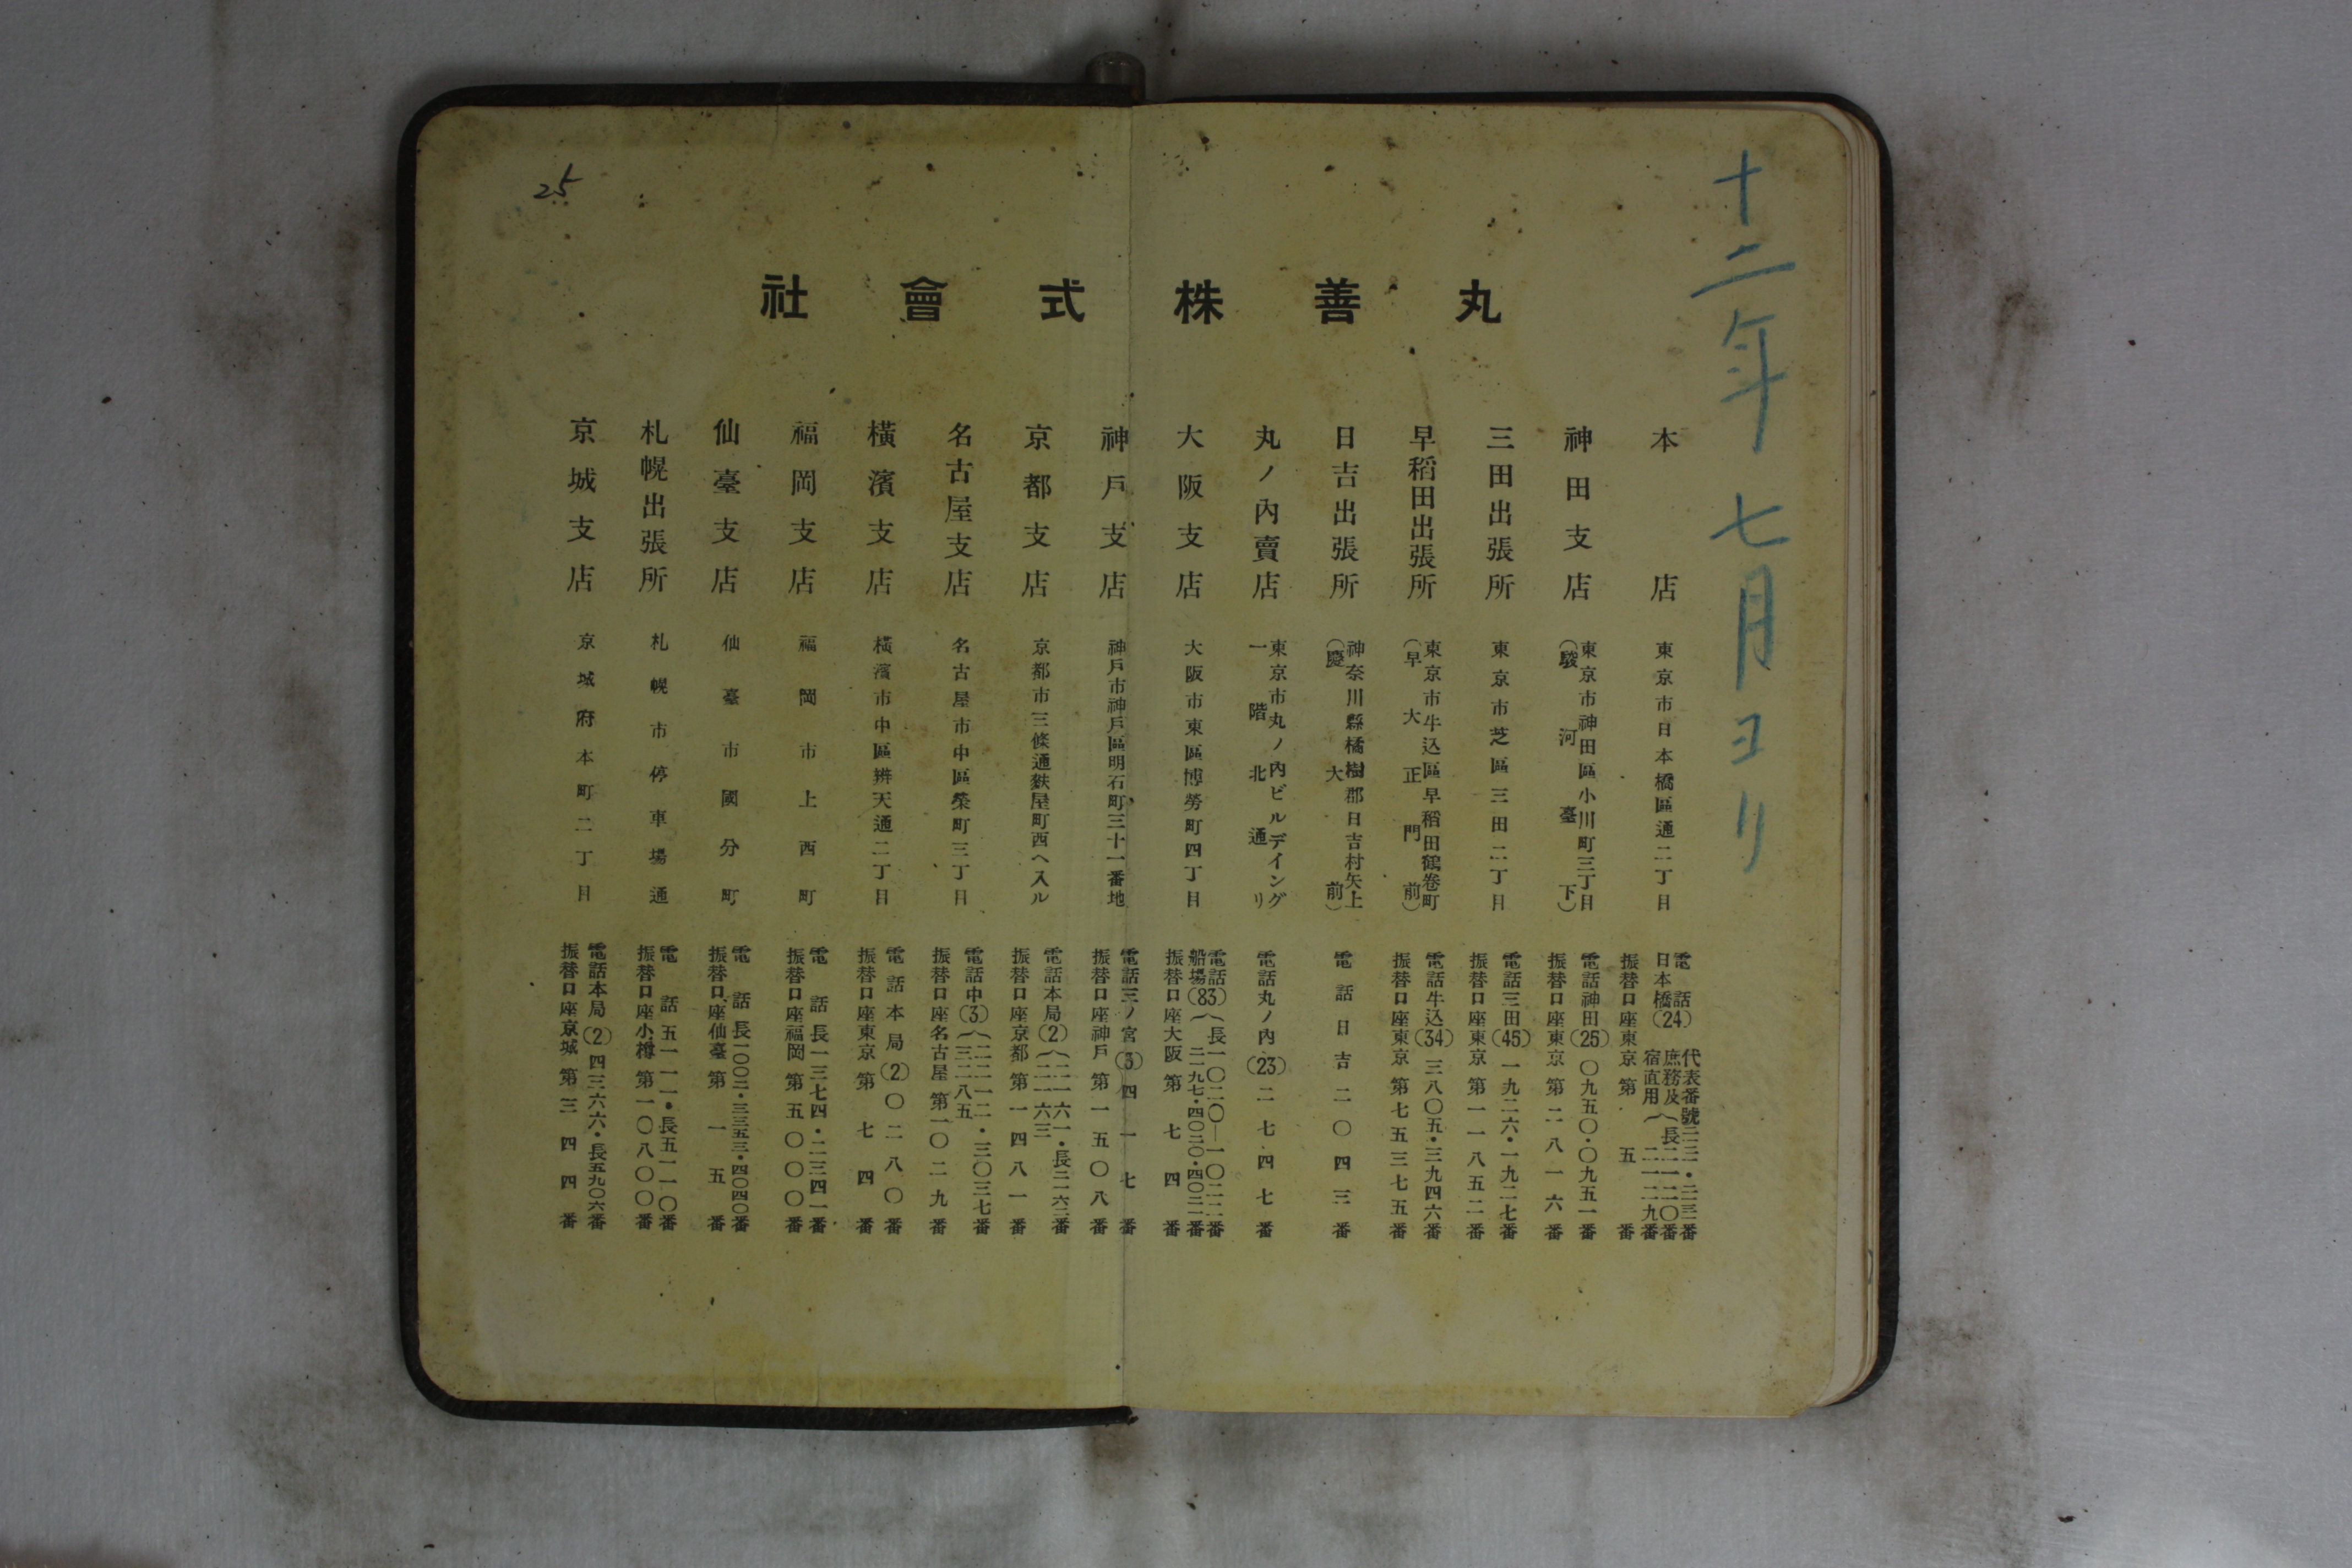 十二年七月ヨリ
丸善株式會社
本店
東京市日本橋區通二丁目
電話日本橋(24)
代表番號二三二・二三三番
庶務及宿直用
長二一二〇番
二一二九番
振替口座東京第五番
神田支店
東京市神田區小川町三丁目
(駿河臺下)
電話神田(25)〇九五〇・〇九五一番
振替口座東京第二八一六番
三田出張所
東京市芝區三田二丁目
電話三田(45)一九二六・一九二七番
振替口座東京第一一八五二番
早稻田出張所
東京市牛込區早稻田鶴卷町
(早大正門前)
電話牛込(34)三八〇五・三九四六番
振替口座東京第七五三七五番
日吉出張所
神奈川縣橘樹郡日吉村矢上
(慶大前)
電話日吉二〇四三番
丸ノ內賣店
東京市丸ノ內ビルデイング
一階北通リ
電話丸ノ內(23)二七四七番
大阪支店
大阪市東區博勞町四丁目
電話船場(83)
長一〇二〇—一〇二二番
二一九七・四〇二〇・四〇二一番
振替口座大阪第七四番
神戶支店
神戶市神戶區明石町三十一番地
電話三ノ宮(3)四一七番
振替口座神戶第一五〇八番
京都支店
京都市三條通麩屋町西ヘ入ル
電話本局(2)
二一六一・長二一六二番
二一六三
振替口座京都第一四八一番
名古屋支店
名古屋市中區榮町三丁目
電話中(3)
二二一二・三〇三七番
三二八五
振替口座名古屋第一〇二九番
橫濱支店
橫濱市中區辨天通二丁目
電話本局(2)〇二八〇番
振替口座東京第七四番
福岡支店
福岡市上西町
電話長一三七四・二三四一番
振替口座福岡第五〇〇〇番
仙臺支店
仙臺市國分町
電話長一〇〇二・三三五三・四〇四〇番
振替口座仙臺第一五番
札幌出張所
札幌市停車場通
電話五一一一・長五一一〇番
振替口座小樽第一〇八〇〇番
京城支店
京城府本町二丁目
電話本局(2)四三六六・長五九〇六番
振替口座京城第三四四番
25